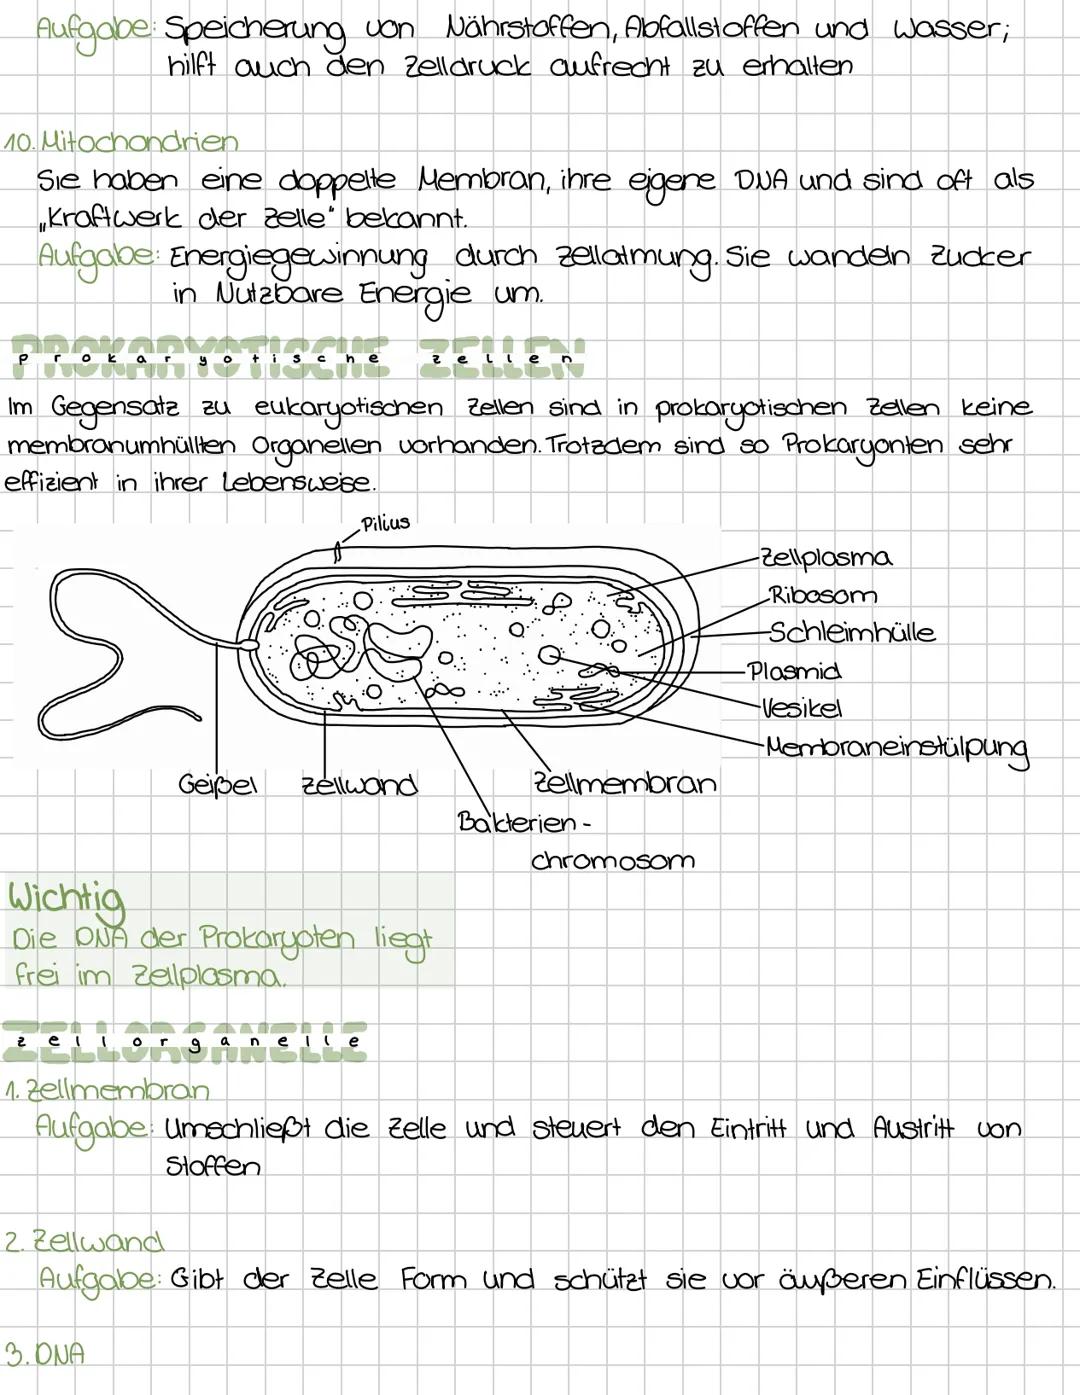 Aufgabe: Speicherung von Nährstoffen, Abfallstoffen und Wasser;
hilft auch den Zelldruck aufrecht zu erhalten
10. Mitochondrien
Sie haben eine doppelte Membran, ihre eigene DNA und sind oft als
„Kraftwerk der Zelle" bekannt.
Aufgabe: Energiegewinnung durch Zellatmung. Sie wandeln Zucker
in Nutzbare Energie um.
PROKARYOTISCHE ZELLEN
prokaryotische zellen
Im Gegensatz zu eukaryotischen Zellen sind in prokaryotischen Zellen keine
membranumhüllten Organellen vorhanden. Trotzdem sind so Prokaryonten sehr
effizient in ihrer Lebensweise.
Pilius
Zellplasma
Ribosom
Schleimhülle
Plasmid
Vesikel
Membraneinstülpung
Geißel Zellwand Zellmembran
Bakterien-
chromosom
Wichtig
Die DNA der Prokaryoten liegt
frei im Zellplasma.
ZELLORGANELLE
zellorganelle
1. Zellmembran
Aufgabe: Umschließt die Zelle und steuert den Eintritt und Austritt von
Stoffen
2. Zellwand
Aufgabe: Gibt der Zelle Form und schützt sie vor äußeren Einflüssen.
3. DNA